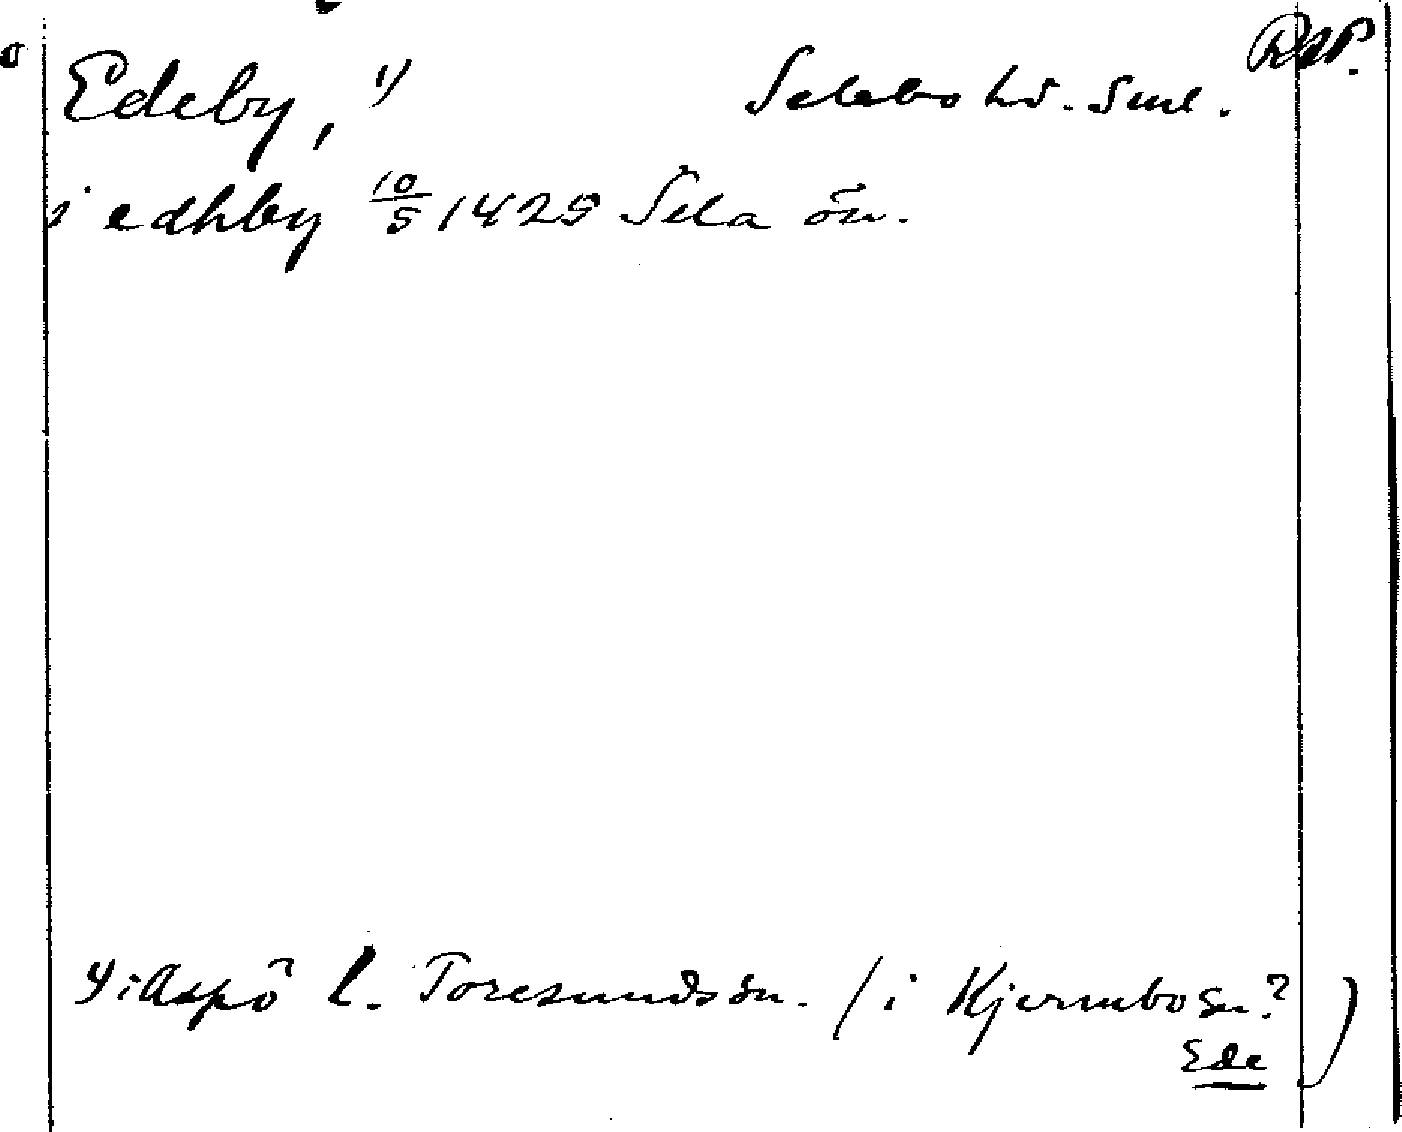 RAP.
Edeby, 1) Selebo hd. Sml.
i edhby 10/5 1425 Sela ön.
1) i Aspö l. Toresunds sn. (i Kjernbo sn.?)
Ede